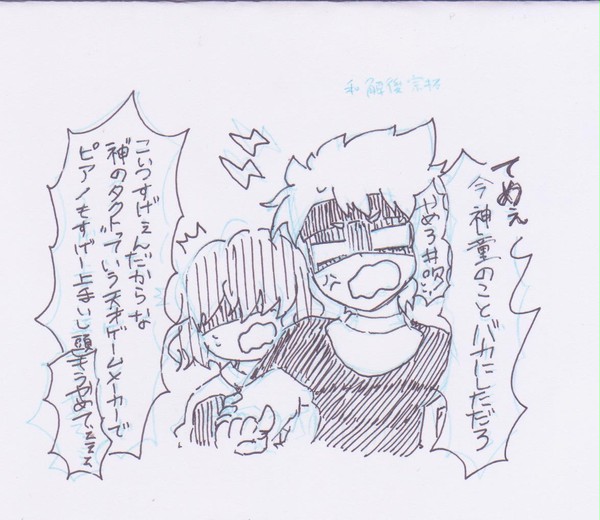 和解後宗拓
てめぇ
今神童のことバカにしただろ
やめろ井吹…!
こいつすげぇんだからな
神のタクトっていう天才ゲームメーカーで
ピアノもすげー上手いし頭
もうやめてぇぇぇ